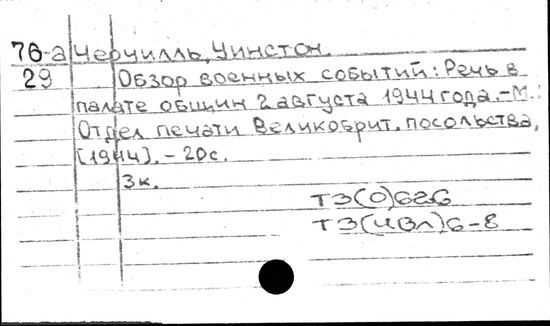 76-а Черчилль, Уинстон.
29 Обзор военных событий: Речь в
палате общин 2 августа 1944 года. - М.:
Отдел печати Великобрит. посольства,
[1944]. - 20с.
3к.
ТЗ(0)62Б
ТЗ(4Вл)6-8